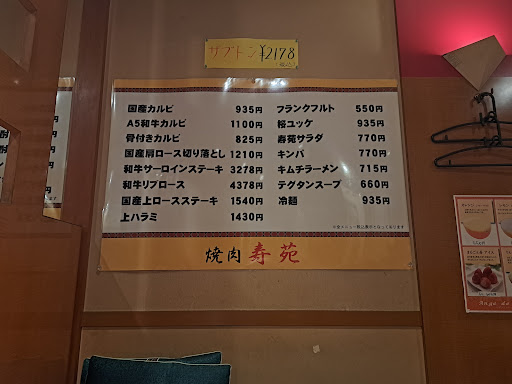 ザブトン ¥2178
国産カルビ 935円
A5和牛カルビ 1100円
骨付きカルビ 825円
国産肩ロース切り落とし 1210円
和牛サーロインステーキ 3278円
和牛リブロース 4378円
国産上ロースステーキ 1540円
上ハラミ 1430円
フランクフルト 550円
桜ユッケ 935円
寿苑サラダ 770円
キンパ 770円
キムチラーメン 715円
テグタンスープ 660円
冷麺 935円
焼肉 寿苑